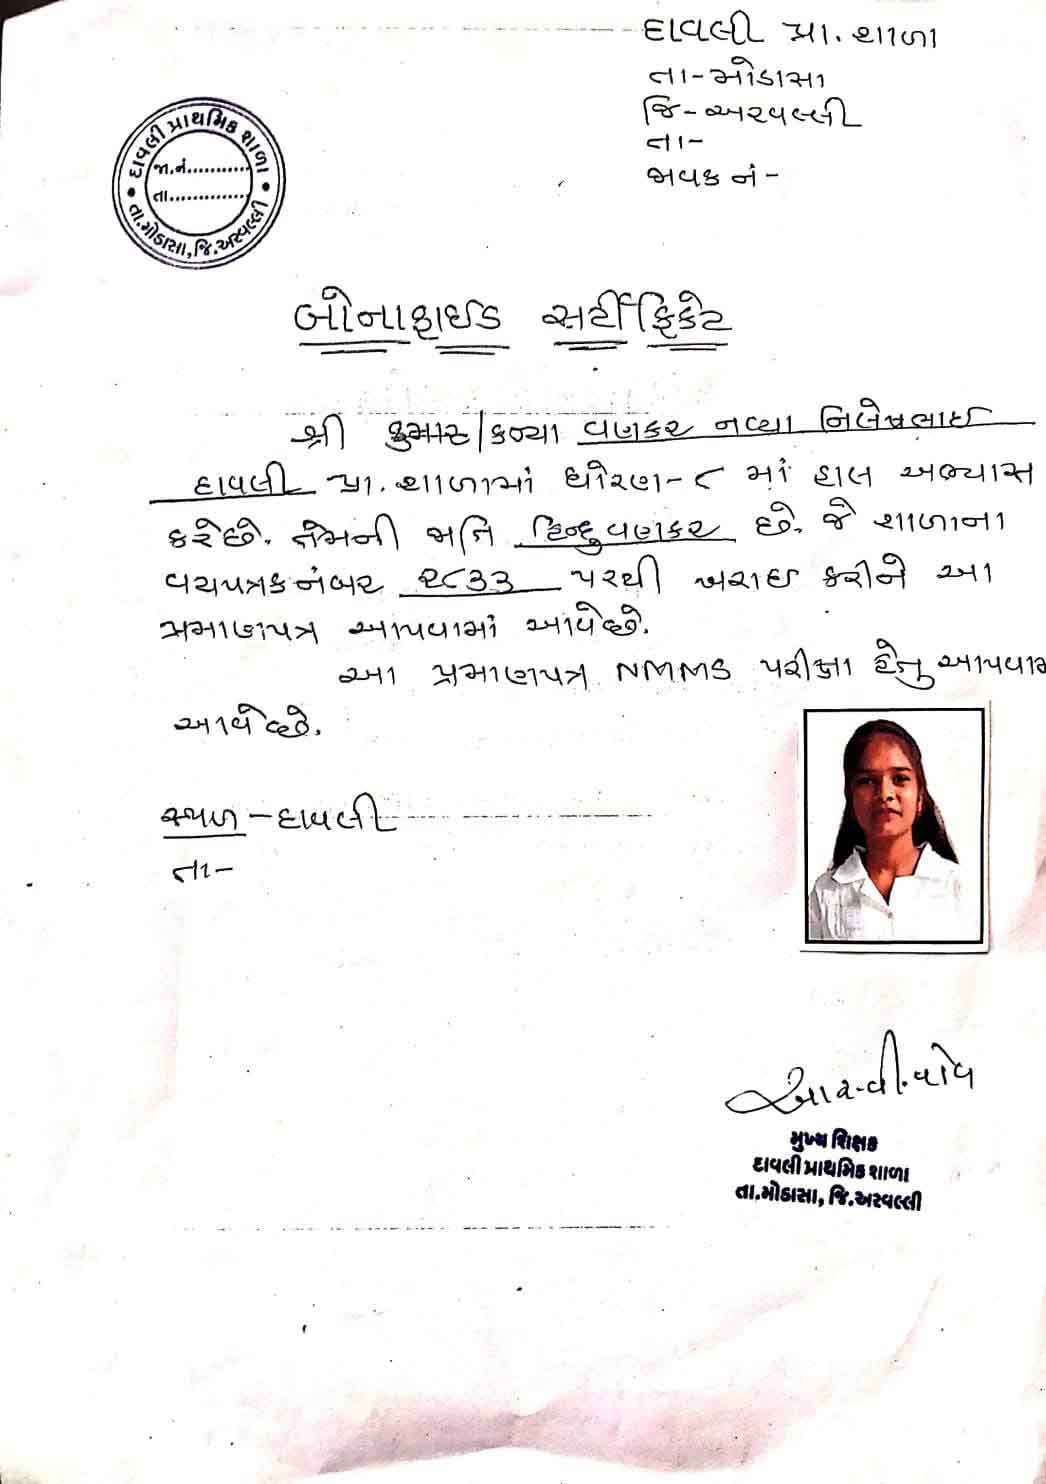 દાવલી પ્રા. શાળા
તા-મોડાસા
જિ-અરવલ્લી
તા-
જાવક નં-
દાવલી પ્રાથમિક શાળા
જા.નં...........
તા..............
તા.મોડાસા, જિ.અરવલ્લી
બોનાફાઇડ સર્ટીફિકેટ
શ્રી કુમાર/કન્યા વણકર નવ્યા નિલેષભાઇ
દાવલી પ્રા. શાળામાં ધોરણ-૮ માં હાલ અભ્યાસ
કરેછે. તેમની જાતિ હિન્દુવણકર છે. જે શાળાના
વયપત્રક નંબર ૨૮૩૩ પરથી ખરાઇ કરીને આ
પ્રમાણપત્ર આપવામાં આવેછે.
આ પ્રમાણપત્ર NMMS પરીક્ષા હેતુ આપવામ
આવેછે.
સ્થળ-દાવલી
તા-
મુખ્ય શિક્ષક
દાવલી પ્રાથમિક શાળા
તા.મોડાસા, જિ.અરવલ્લી